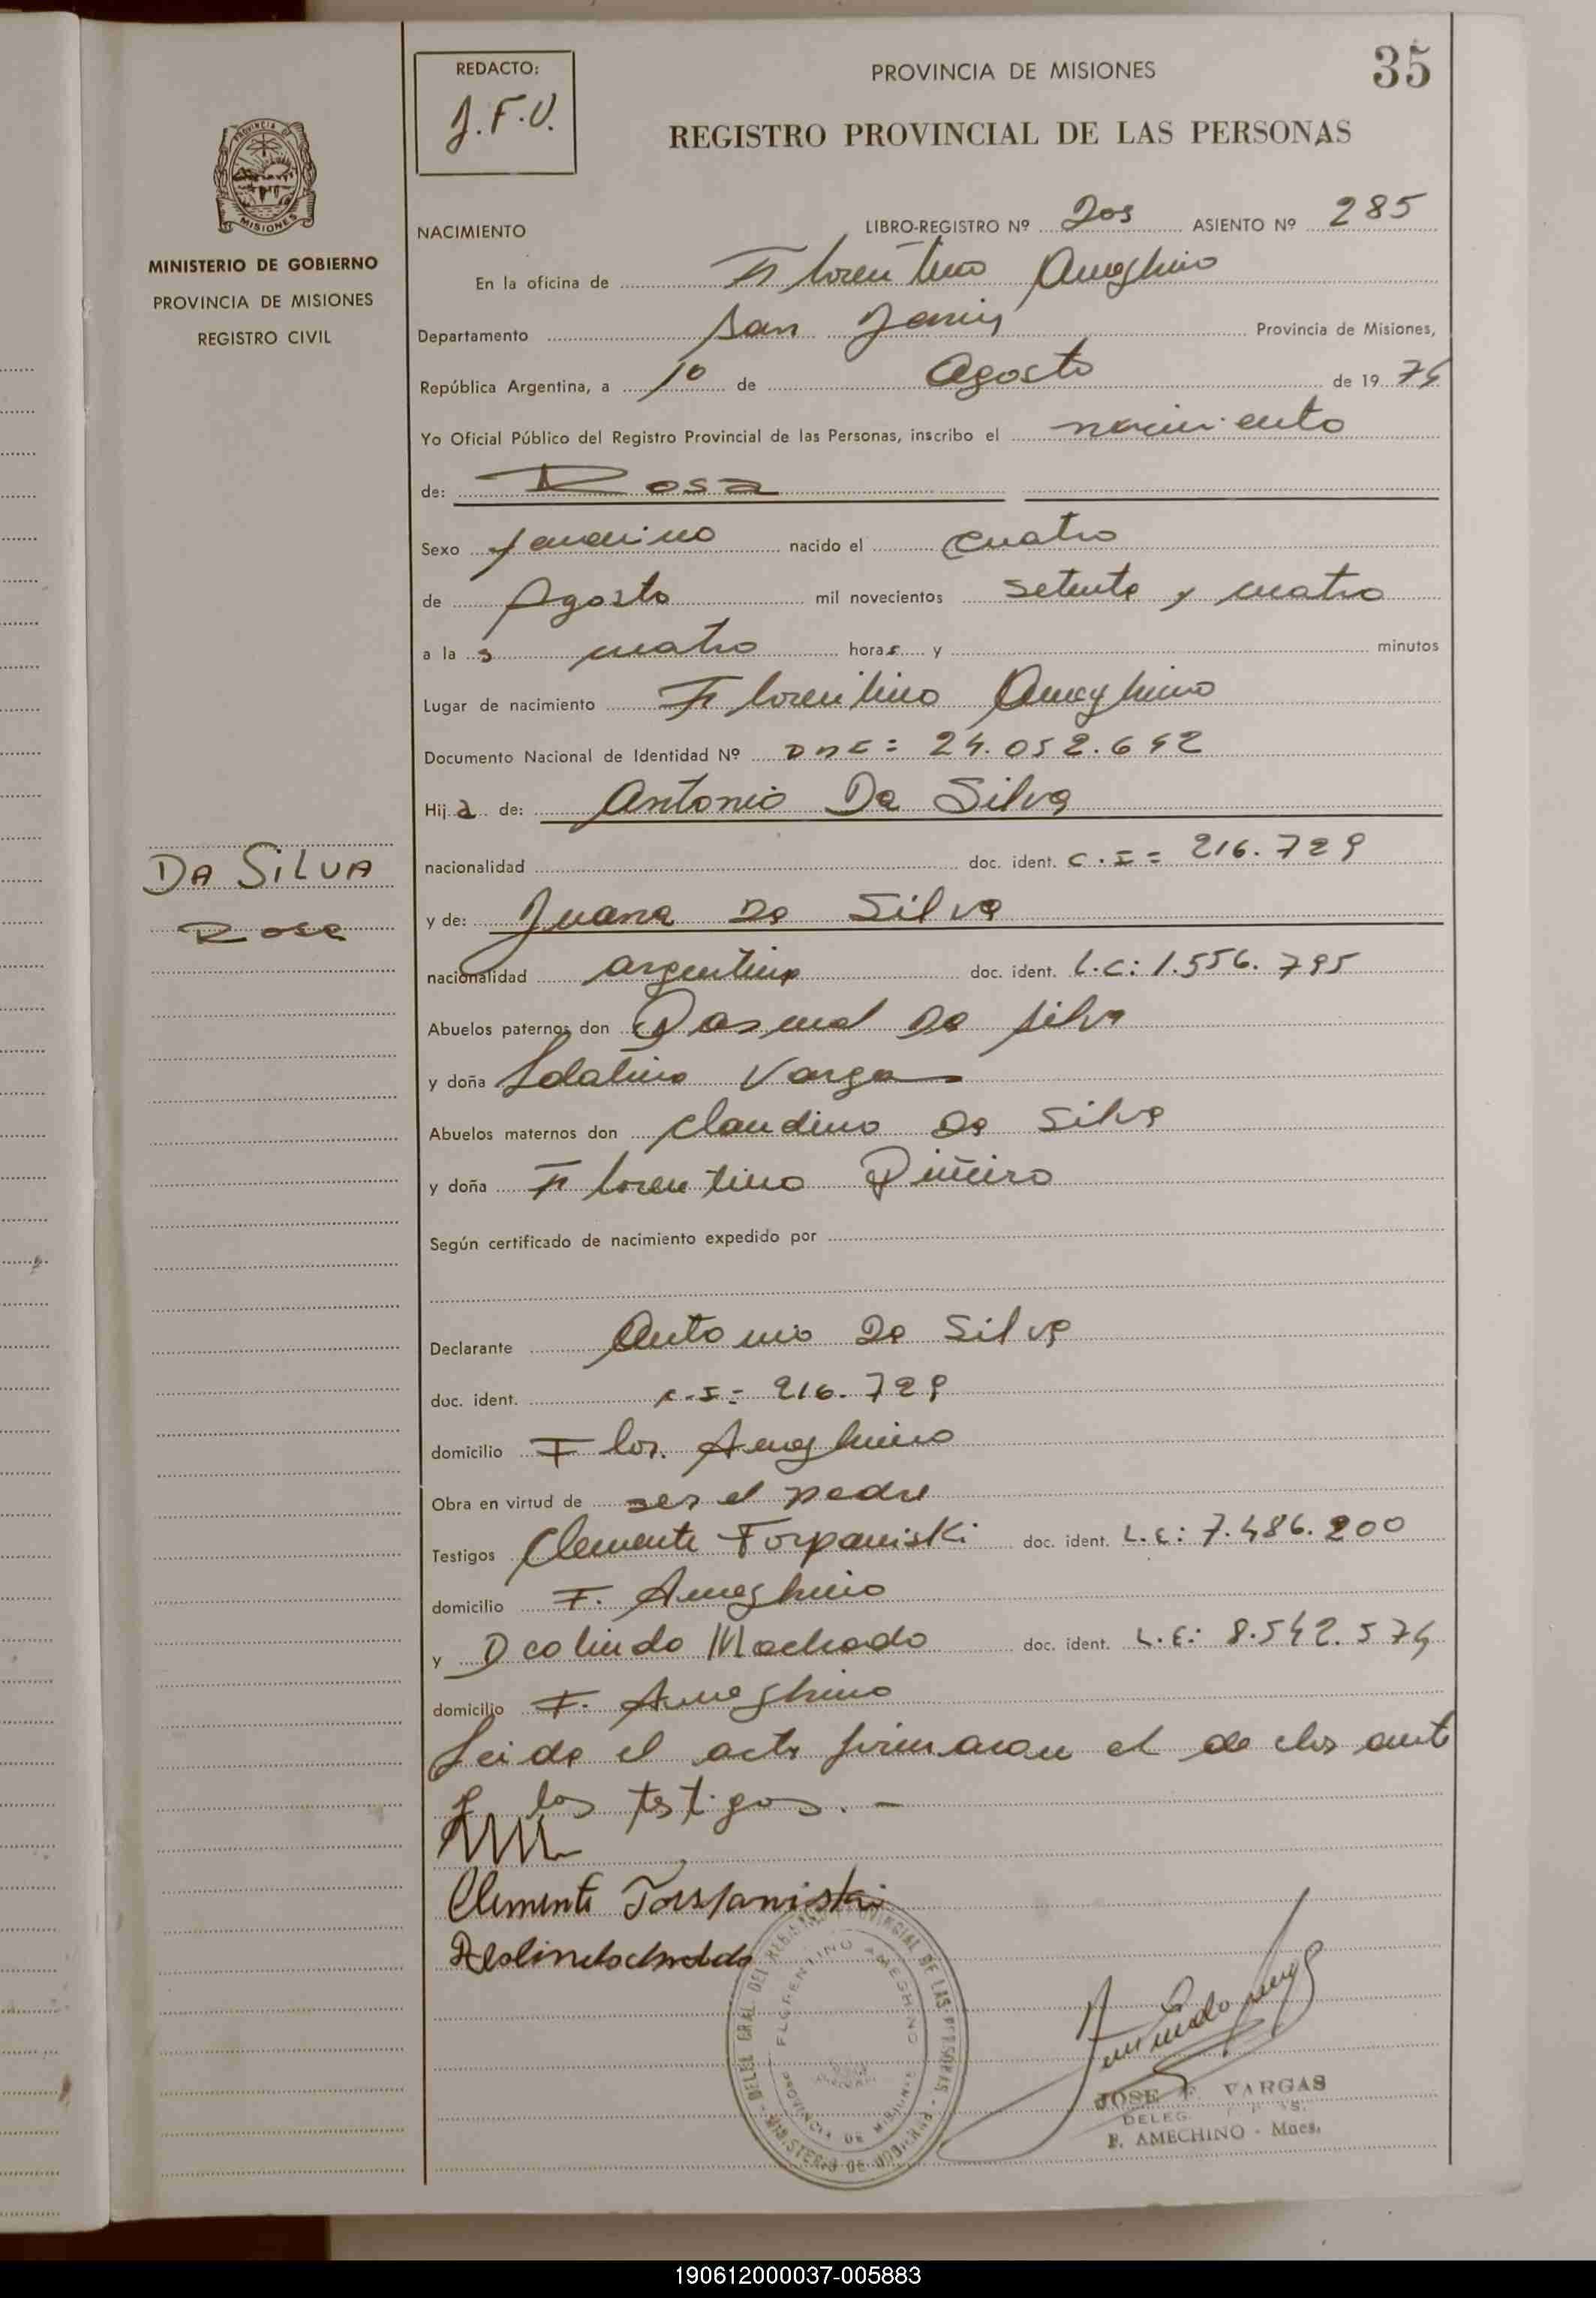 35
REDACTO:
J.F.V.
PROVINCIA DE MISIONES
REGISTRO PROVINCIAL DE LAS PERSONAS
PROVINCIA DE
MISIONES
MINISTERIO DE GOBIERNO
PROVINCIA DE MISIONES
REGISTRO CIVIL
NACIMIENTO LIBRO-REGISTRO Nº Dos ASIENTO Nº 285
En la oficina de Florentino Ameghino
Departamento San Javier Provincia de Misiones,
República Argentina, a 10 de Agosto de 1974
Yo Oficial Público del Registro Provincial de las Personas, inscribo el nacimiento
de: Rosa
Sexo femenino nacido el cuatro
de Agosto mil novecientos setenta y cuatro
a las cuatro horas y minutos
Lugar de nacimiento Florentino Ameghino
Documento Nacional de Identidad Nº 24.052.642
Hija de: Antonio Da Silva
nacionalidad doc. ident. C.I= 216.729
DA SILVA
Rosa
y de: Juana Da Silva
nacionalidad argentina doc. ident. L.C: 1.556.795
Abuelos paternos don Pascual Da Silva
y doña Vargas
Abuelos maternos don Claudino Da Silva
y doña Florentino Piñeiro
Según certificado de nacimiento expedido por
Declarante Antonio Da Silva
doc. ident. C.I= 216.729
domicilio Flor. Ameghino
Obra en virtud de ser el padre
Testigos Clemente doc. ident. L.E: 7.486.200
domicilio F. Ameghino
y Machado doc. ident. L.E: 8.542.574
domicilio F. Ameghino
Leida el acta firmaron el declarante
y los testigos. -
Clemente
DELEG. GRAL. DEL REGISTRO PROVINCIAL DE LAS PERSONAS - MINISTERIO DE GOBIERNO
FLORENTINO AMEGHINO
PROVINCIA DE MISIONES
JOSE F. VARGAS
DELEG.
F. AMECHINO - Mnes.
190612000037-005883